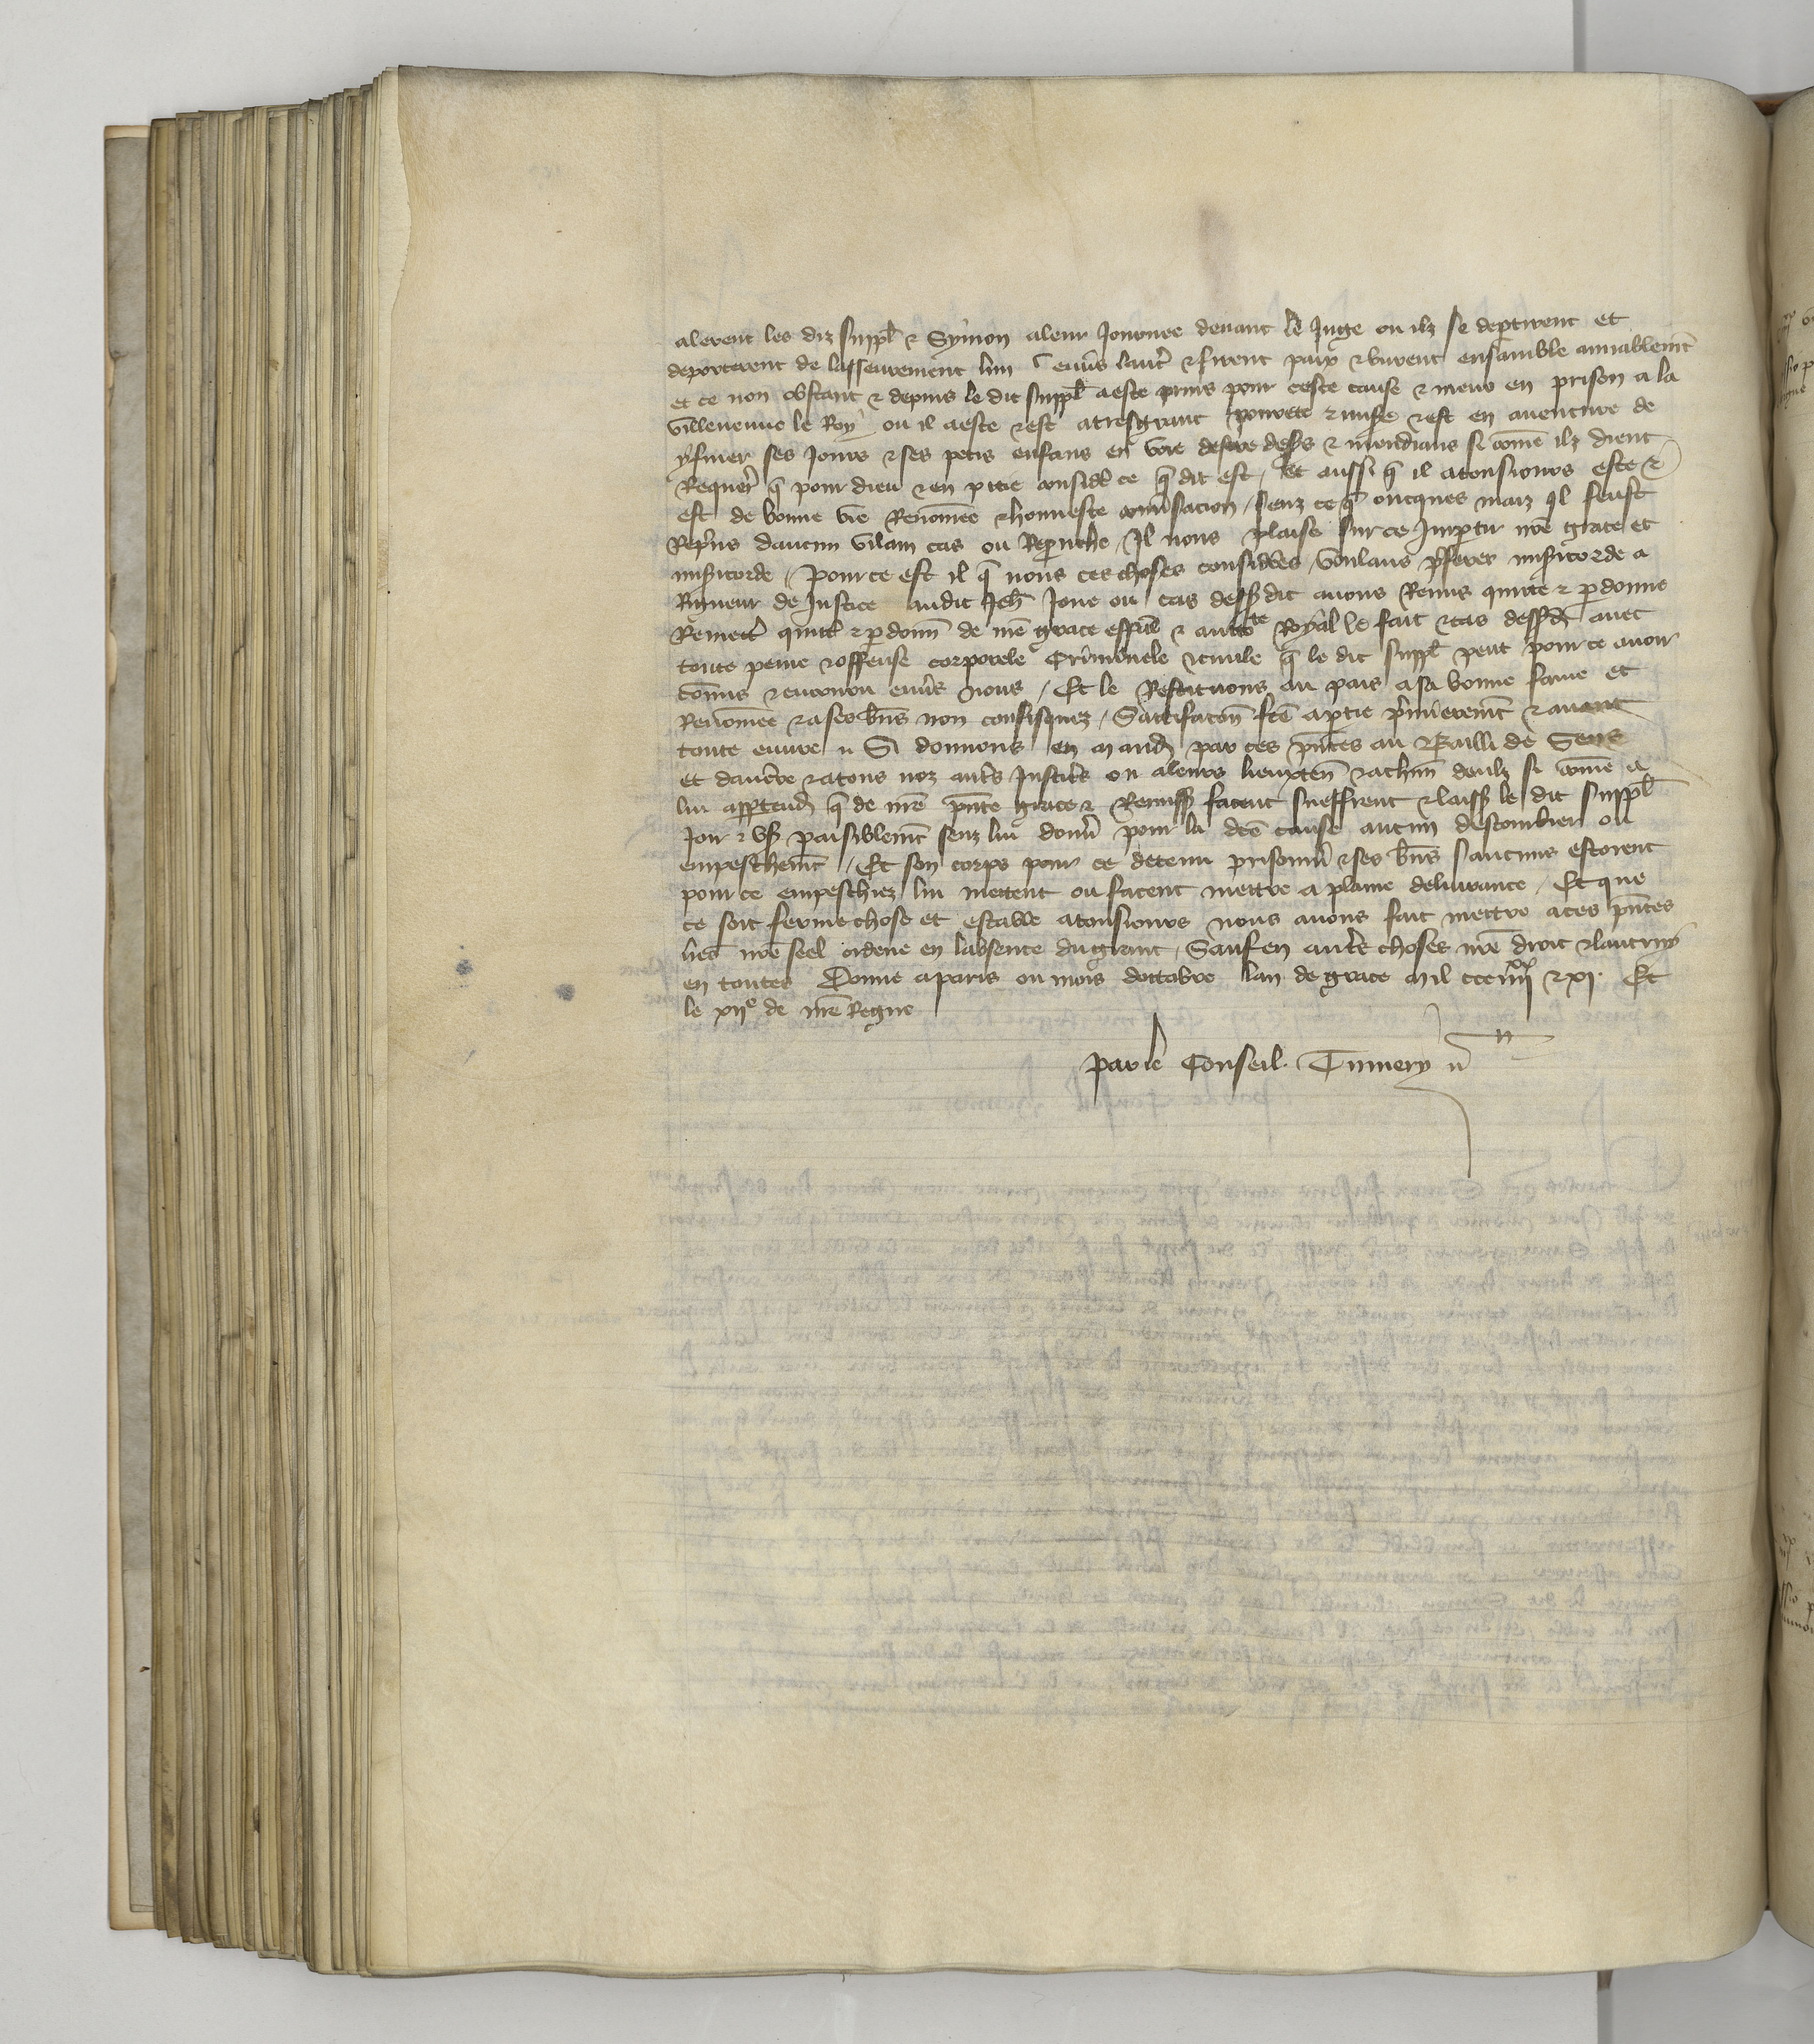 alerent les diz suppl̄ & Symon a leur Journee devant le Juge ou ilz se deꝑtirent et
deporterent de lasseurement lun envꝰs laut̾ & firent paix & burent ensamble amiablem̄t
et ce non obstant & depuis le dit suppl̄ a este prins pour ceste cause & mené en prison a la
villeneuve le Roy ou il a este & est a tresgrant povrete & misꝰe & est en aventure de
y finer ses Jours & ses petis enfans en voie destre desꝰs & mendians si com̄e ilz dient
Requerꝰ q̄ pour dieu & en pitie considꝰe ce q̄ dit est / Et aussi q̄ il a tousiours este &
est de bonne vie Renom̄ee & honneste conuꝰsacion / senz ce q̄ oncques maiz il feust
Repꝰns daucun vilain cas ou Reprouche / Il nous plaise sur ce Imꝑtir nr̄e grace et
misꝰicorde / Pour ce est il q̄ nous ces choses considꝰees / voulans p̄ferer misꝰicorde a
Rigueur de Justice audit Jeh̄ Joue ou cas dessꝰdit avons Remis quitte & ꝑdonne
Remettꝰ quittꝰ & ꝑdonn̄ de nr̄e grace esp̄al & auctote Royal le fait & cas dessꝰd̄ avec
toute peine & offense corporele Criminele & civile q̄ le dit suppl̄ peut pour ce avoir
com̄is & encouru envꝰs nous / Et le Restituons au pais a sa bonne fame et
Renom̄ee & a ses bn̄s non confisquez / Satisfacon̄ fc̄e a ꝑtie pꝰmierem̄t & avant
toute euvre Si donnons en mand̄ par ces pn̄tes au Bailli de Sens
et dauxꝰre & a tous noz autꝰs Justicꝰs ou a leurs lieuxten̄ & a chūn deulx si com̄e a
lui apꝑtend̄ q̄ de nr̄e pn̄te grace & Remissꝰ facent sueffrent & laissꝰ le dit suppl̄
Joir & usꝰ paisiblem̄t senz lui donnꝰ pour la dc̄e cause aucun destourbier ou
empeschem̄t / Et son corps pour ce detenu prisonnꝰ & ses bn̄s saucuns estoient
pour ce empeschiez lui mettent ou facent mettre a plaine delivrance / Et que
ce soit ferme chose et estable a tousiours nous avons fait mettre a ces pn̄tes
lr̄es nr̄e seel ordene en labsence du grant / Sauf en autꝰs choses nr̄e droit & lautruy
en toutes Donne a paris ou mois doctobre lan de grace mil ccc iiiixx & xi. Et
le xiie de nr̄e Regne
Par le Conseil.